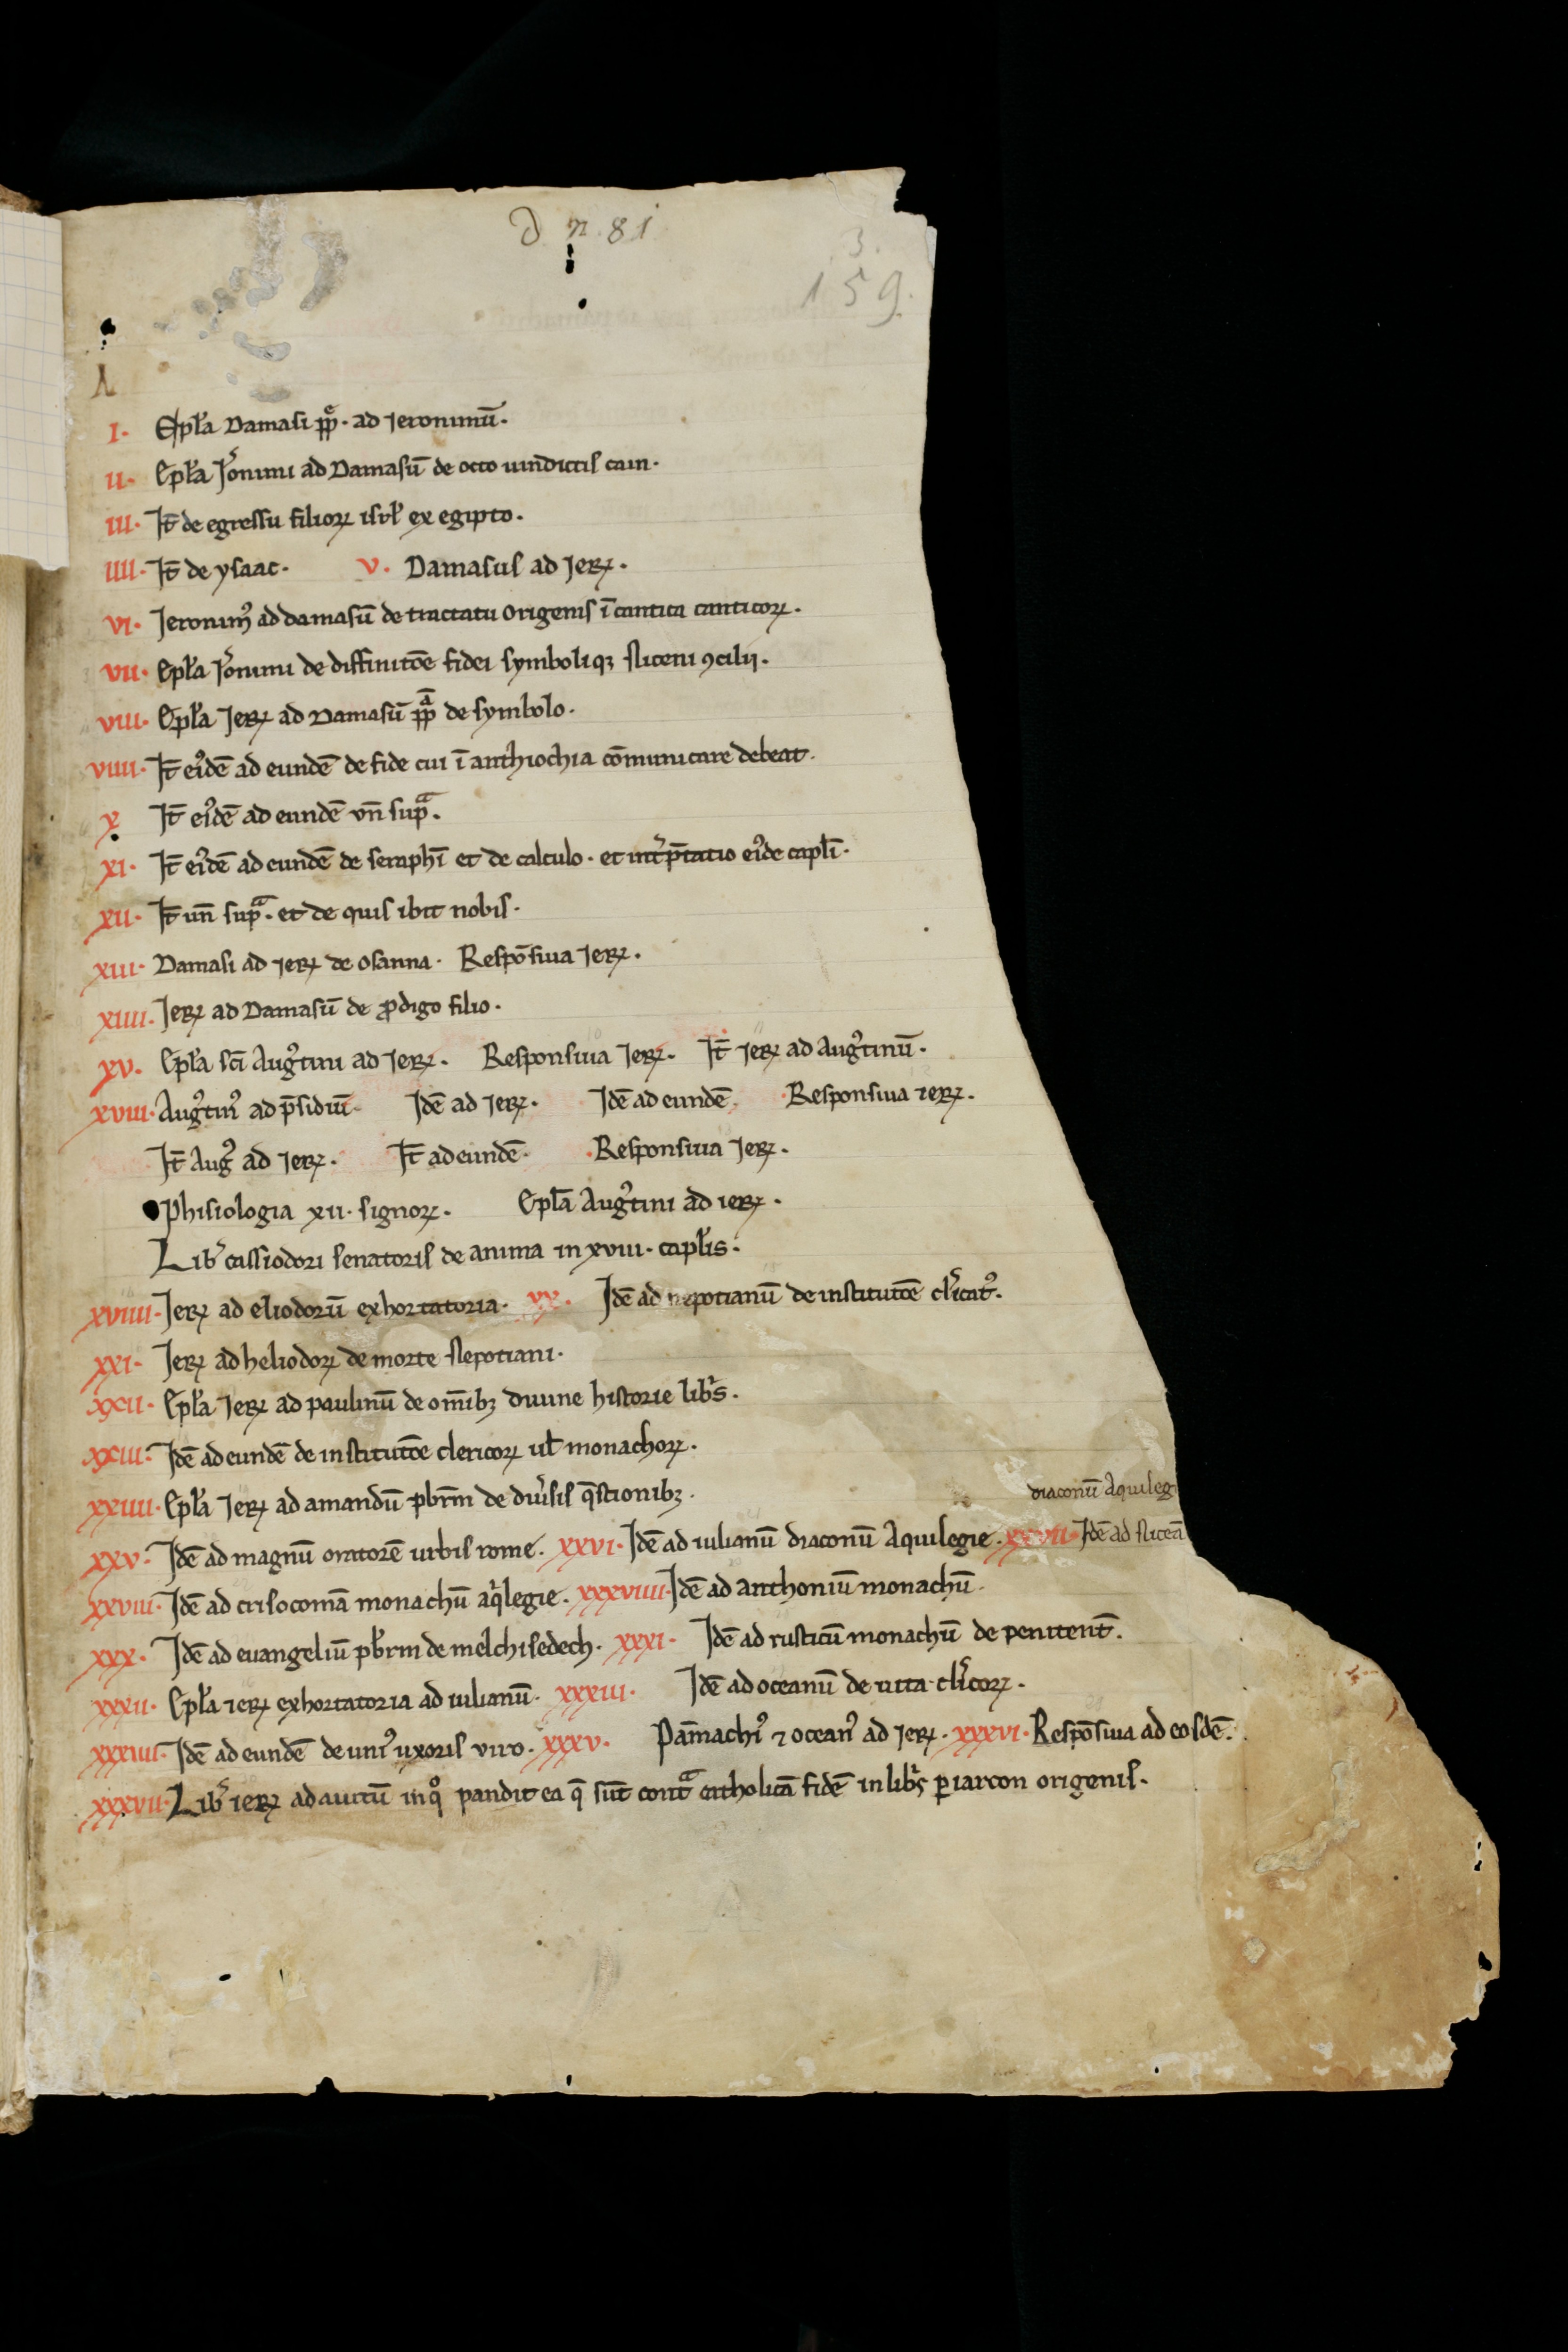 D n. 81
3.
159.
A
I. Epl'a Damasi pp̄. ad Jeronimū.
II. Epl'a Jeronimi ad Damasū de octo uindictis cain.
III. It̄ de egressu filioꝝ isrl' ex egipto.
IIII. It̄ de ysaac. V. Damasus ad Jerꝝ.
VI. Jeronimꝰ ad damasū de tractatu origenis ī cantica canticoꝝ.
VII. Epl'a J'onimi de diffinitōe fidei symboliqꝫ Niceni ꝯcilij.
VIII. Epl'a Jerꝝ ad Damasū pp̄ā de symbolo.
VIIII. It̄ eiꝰdē ad eundē de fide cui ī anthiochia cōmunicare debeat.
X It̄ eiꝰdē ad eundē vn̄ supᵃ.
XI. It̄ eiꝰdē ad eundē de seraphī et de calculo. et int'p̄tatio eiꝰdē capl'i.
XII. It̄ un̄ supᵃ. et de quis ibit nobis.
XIII. Damasi ad Jerꝝ de osanna. Respōsiua Jerꝝ.
XIIII. Jerꝝ ad Damasū de ꝓdigo filio.
XV. Epl'a sc̄i Augꝰtini ad Jerꝝ. Responsiua Jerꝝ. It̄ Jerꝝ ad augꝰtinū.
XVIII. Augꝰtinꝰ ad p̄sidiū. Idē ad Jerꝝ. Idē ad eundē. Responsiua ierꝝ.
It̄ Augꝰ ad Jerꝝ. It̄ ad eundē. Responsiua Jerꝝ.
Phisiologia xii. signoꝝ. Epl'a Augꝰtini ad ierꝝ.
Lib' cassiodori senatoris de anima in xviii. capl'is.
XVIIII. Jerꝝ ad eliodorū exhortatoria. XX. Idē ad nepotianū de institutōe cl'icatꝰ.
XXI. Jerꝝ ad heliodoꝝ de morte Nepotiani.
XXII. Epl'a Jerꝝ ad paulinū de om̄ibꝫ diuine historie lib's.
XXIII. Idē ad eundē de institutōe clericoꝝ ul' monachoꝝ.
XXIIII. Epl'a Jerꝝ ad amandū pbr̄m de diu'sis q̄stionibꝫ.
diaconū Aquileg
XXV. Idē ad magnū oratorē urbis rome. XXVI. Idē ad iulianū diaconū Aquilegie. XXVII. Idē ad niceā
XXVIII. Idē ad crisocomā monachū aqⁱlegie. XXXVIIII. Idē ad anthoniū monachū.
XXX. Idē ad euangeliū pbr̄m de melchisedech. XXXI. Idē ad rusticū monachū de penitent̄.
XXXII. Epl'a ierꝝ exhortatoria ad iulianū. XXXIII. Idē ad oceanū de uita cl'icoꝝ.
XXXIIII. Idē ad eundē de uniꝰ uxoris viro. XXXV. Pam̄achiꝰ ⁊ oceanꝰ ad Jerꝝ. XXXVI. Respōsiua ad eosdē.
XXXVII. Lib' ierꝝ ad auitū in qͦ pandit ea q̄ sūt contᵃ catholicā fidē in lib's periarcon origenis.